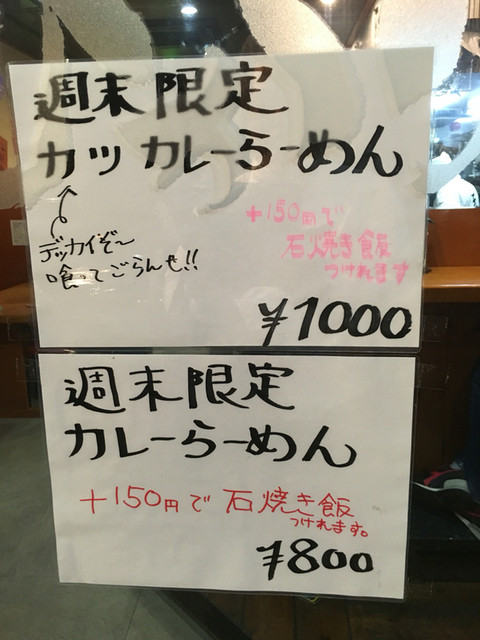 週末限定
カツカレーらーめん
デッカイぞ〜
喰ってごらんも!!
+150円で
石焼き飯
つけれます
¥1000
週末限定
カレーらーめん
+150円で石焼き飯
つけれます。
¥800